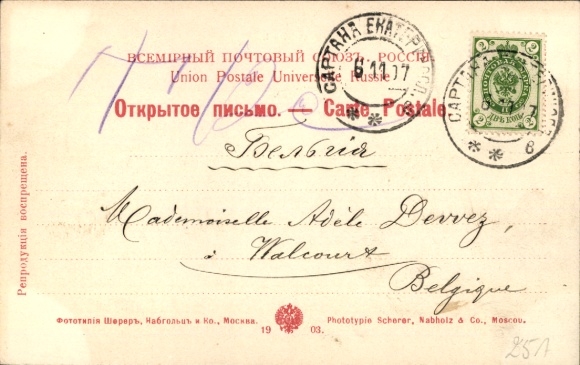 ВСЕМІРНЫЙ ПОЧТОВЫЙ СОЮЗЪ. РОССІЯ
Union Postale Universelle Russie
Открытое письмо. — Carte Postale
САРТАНА ЕКАТЕР
6 11 07
2 2
ПОЧТОВАЯ МАРКА
ДВѢ КОП.
2 2
САРТАНА
7
в
Бельгія
Mademoiselle Adèle Devvez,
à Walcourt
Belgique
Репродукція воспрещена.
Фототипія Шереръ, Набгольцъ и Ко., Москва.
19 03.
Phototypie Scherer, Nabholz & Co., Moscou.
251